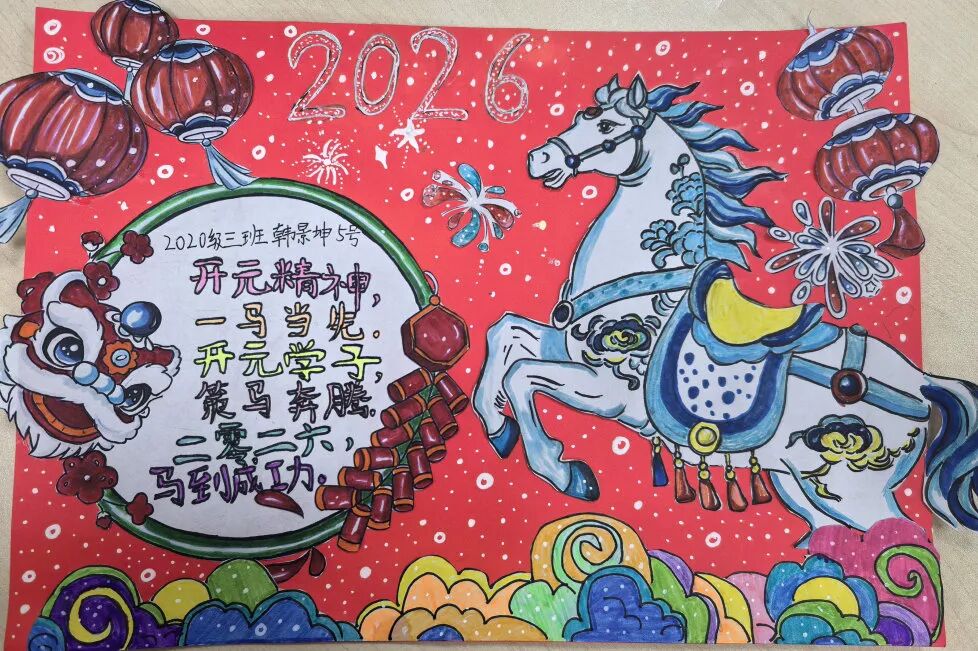 2026
2020级三班 韩景坤 5号
开元精神，
一马当先．
开元学子，
策马奔腾．
二零二六，
马到成功．